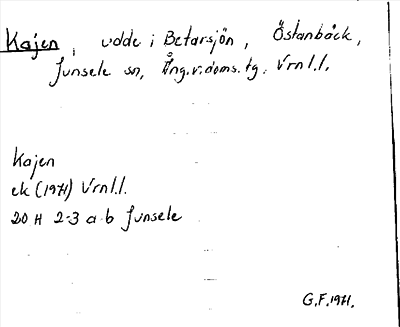 Kajen, udde i Betarsjön, Östanbäck,
Junsele sn, Ång.v.doms.tg. Vrnl.l.
Kajen
ek (1971) Vrnl.l.
20 H 2-3 a-b Junsele
G.F. 1971.